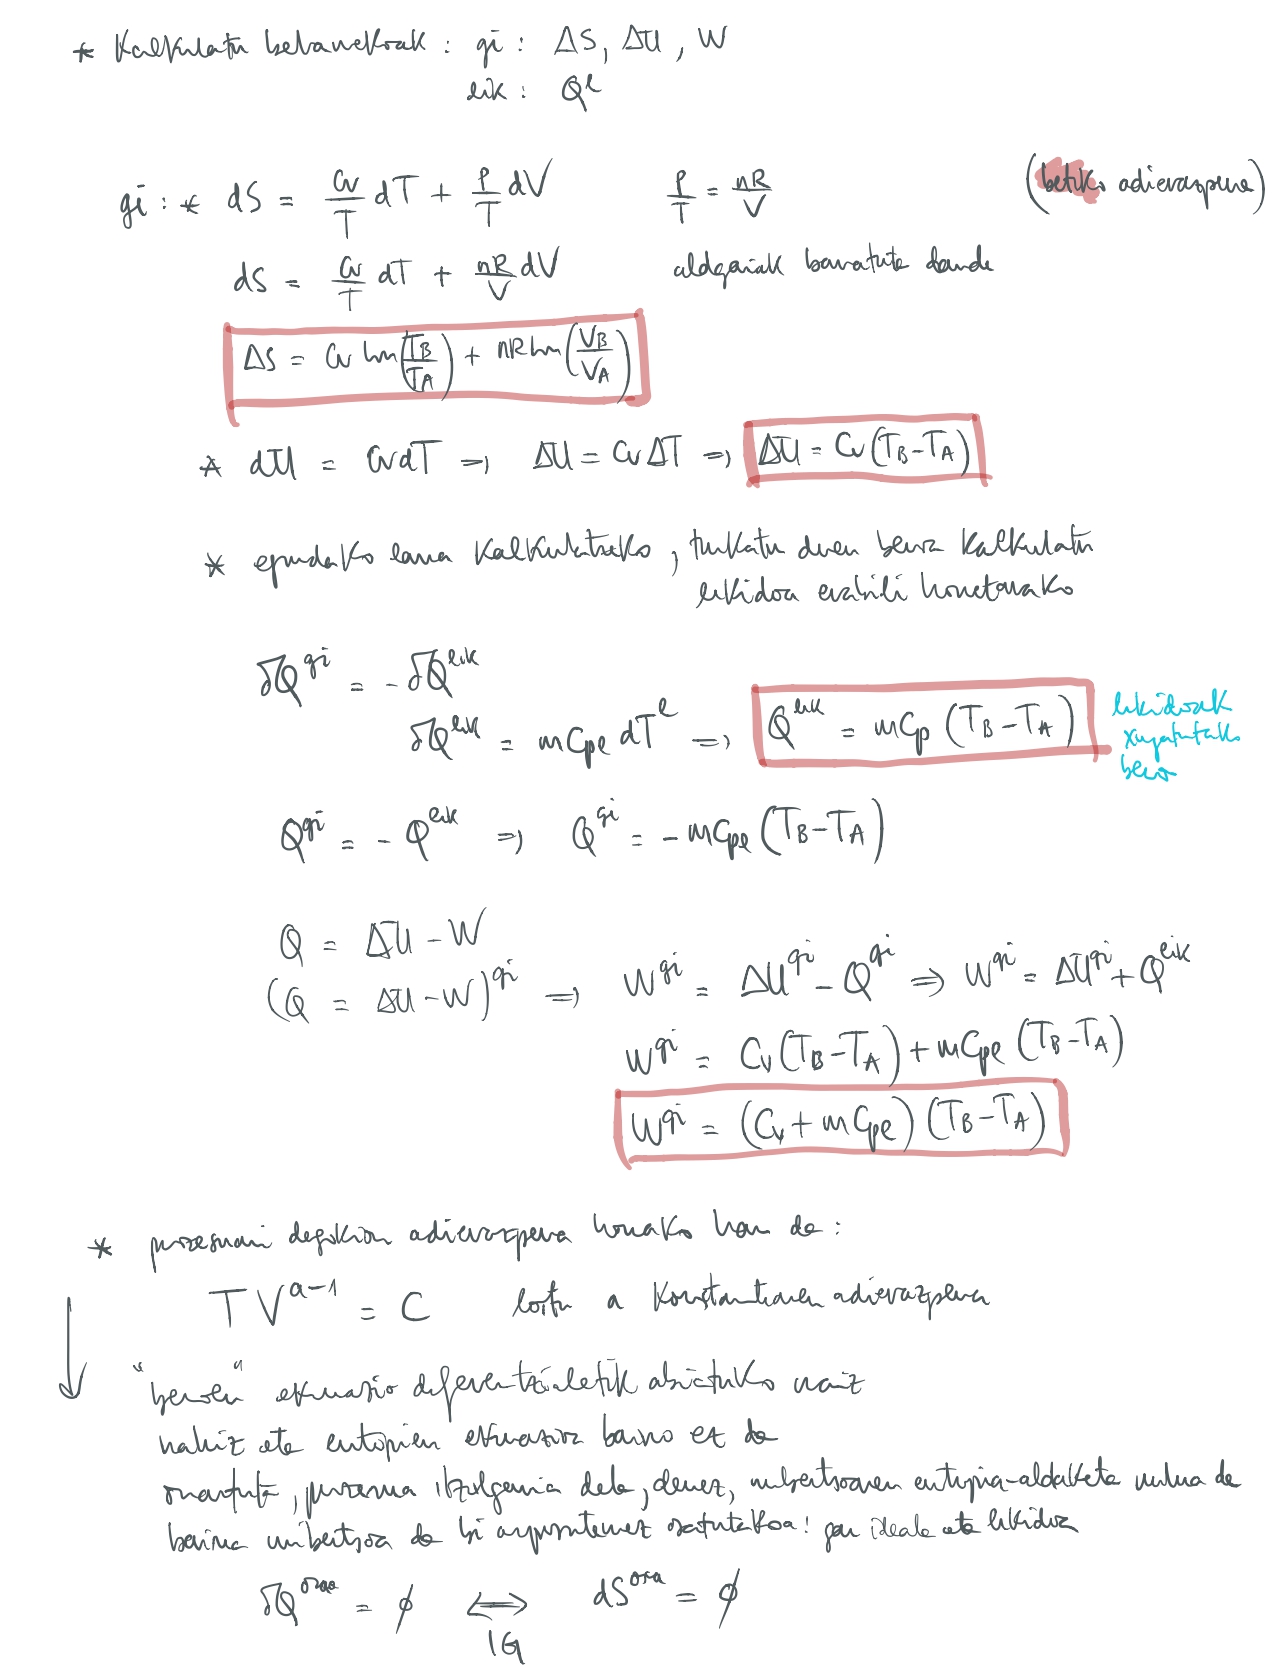 * Kalkulatu beharrekoak : gi : ΔS, ΔU, W
lik : Qˡ
gi : * dS = Cv/T dT + P/T dV P/T = nR/V (betiko adierazpena)
dS = Cv/T dT + nR/V dV aldagaiak banatuta daude
ΔS = Cv ln(TB/TA) + nR ln(VB/VA)
* dU = CvdT ⇒ ΔU = CvΔT ⇒ ΔU = Cv(TB-TA)
* egindako lana kalkulatzeko, trukatu duen beroa kalkulatu
likidoa erabili honetarako
δQ^gi = -δQ^lik
δQ^lik = mCpe dT^l ⇒ Q^lik = mCp (TB-TA) likidoak
xurgatutako
beroa
Q^gi = - Q^lik ⇒ Q^gi = - mCpe (TB-TA)
Q = ΔU - W
(Q = ΔU-W)^gi ⇒ W^gi = ΔU^gi - Q^gi ⇒ W^gi = ΔU^gi + Q^lik
W^gi = Cv(TB-TA) + mCpe (TB-TA)
W^gi = (Cv + mCpe) (TB-TA)
* prozesuari dagokion adierazpena honako hau da :
TV^a-1 = C lortu a konstantearen adierazpena
"beroen" ekuazio diferentzialetik abiatuko naiz
nahiz eta entropien ekuazioa baino ez da
onartuta, prozesua itzulgarria dela, denez, unibertsoaren entropia-aldaketa nulua da
baina unibertsoa da bi azpisistemez osatutakoa: gas ideala eta likidoa
δQ^oroa = ∅ ⟺ dS^oroa = ∅
IG